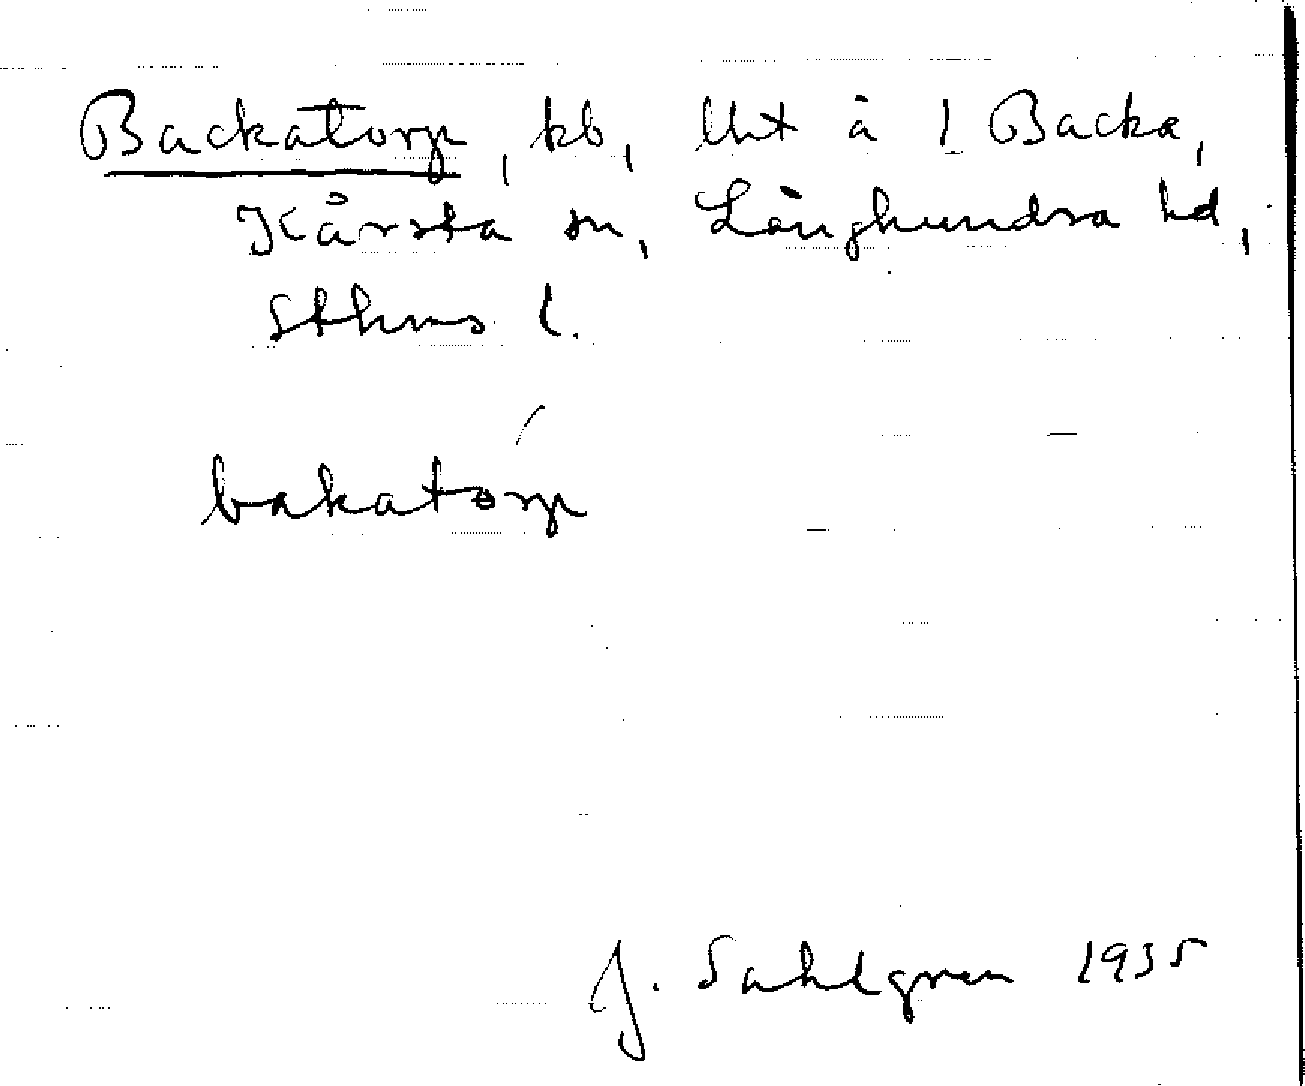 Backatorp, kb, Utit å 1 Backa,
Kårsta sn, Långhundra hd,
Sthms l.
bakatórp
J. Sahlgren 1935